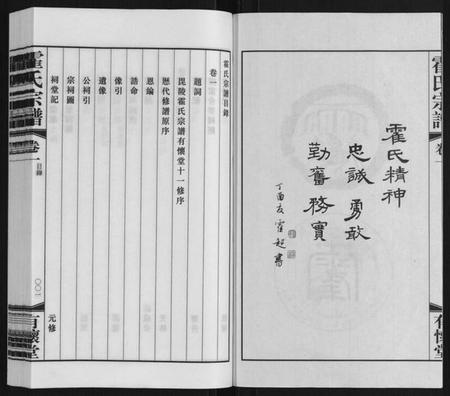 霍氏宗譜
卷一
有懷堂
霍氏精神
忠誠勇敢
勤奮務實
丁酉友霍超書
霍氏宗譜目錄
卷一
題詞
毘陵霍氏宗譜有懷堂十一修序
歷代修譜原序
恩綸
誥命
像引
遺像
公祠引
宗祠圖
祠堂記
元修
霍氏宗譜
卷一
目錄
〇〇一
有懷堂